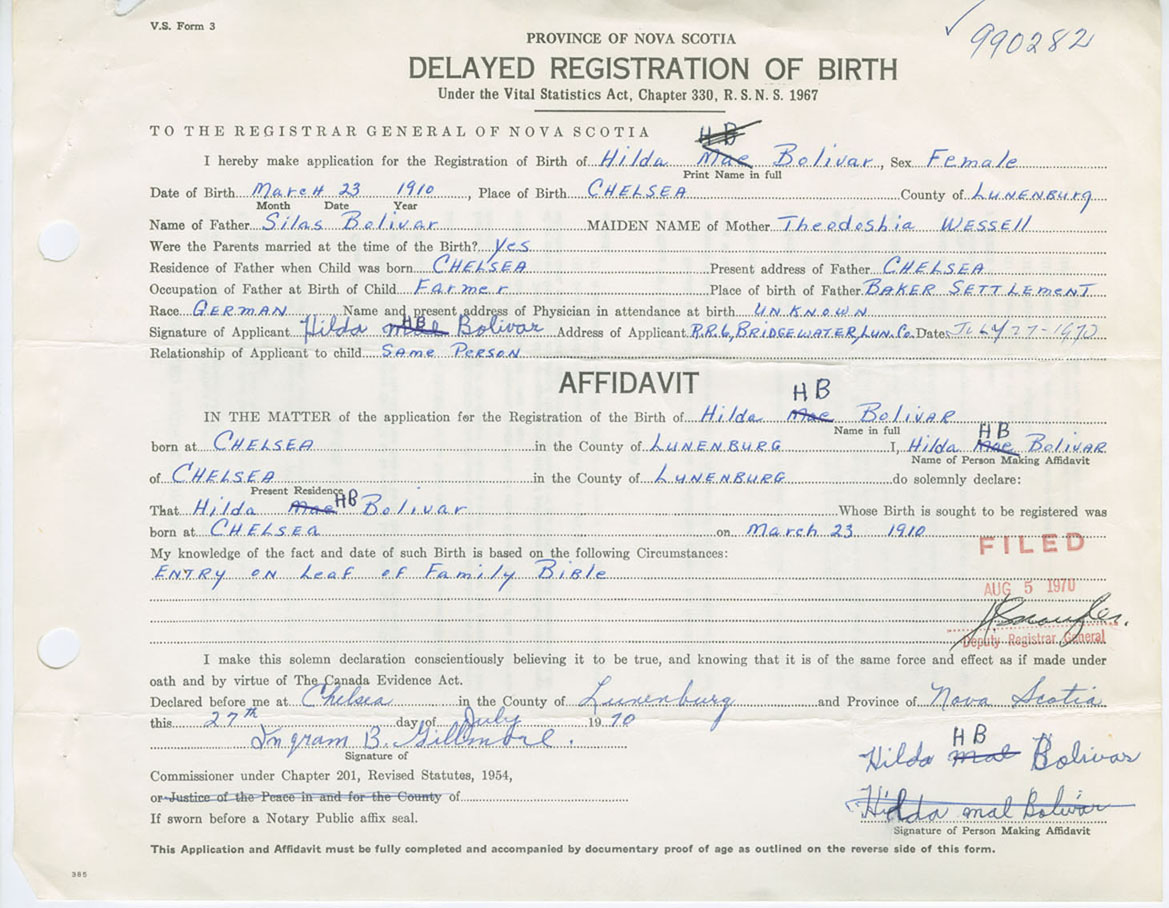 V.S. Form 3
990282
PROVINCE OF NOVA SCOTIA
DELAYED REGISTRATION OF BIRTH
Under the Vital Statistics Act, Chapter 330, R.S.N.S. 1967
TO THE REGISTRAR GENERAL OF NOVA SCOTIA
HB
I hereby make application for the Registration of Birth of Hilda Mae Bolivar, Sex Female
Print Name in full
Date of Birth March 23 1910, Place of Birth CHELSEA County of LUNENBURg
Month Date Year
Name of Father Silas Bolivar MAIDEN NAME of Mother Theodoshia WESSEll
Were the Parents married at the time of the Birth? yes
Residence of Father when Child was born CHELSEA Present address of Father CHELSEA
Occupation of Father at Birth of Child Farmer Place of birth of Father BAKER SETTLEMENT
Race GERMAN Name and present address of Physician in attendance at birth UNKNOWN
Signature of Applicant Hilda HB Bolivar Address of Applicant R.R.6, BRIDGEWATER, LUN. Co. Date JULY 27-1970
Relationship of Applicant to child SAME PERSON
AFFIDAVIT
HB
IN THE MATTER of the application for the Registration of the Birth of Hilda Mae BOLIVAR
Name in full
HB
born at CHELSEA in the County of LUNENBURG I, Hilda Mae BOLIVAR
Name of Person Making Affidavit
of CHELSEA in the County of LUNENBURG do solemnly declare:
Present Residence
That Hilda Mae HB Bolivar Whose Birth is sought to be registered was
born at CHELSEA on March 23 1910
FILED
My knowledge of the fact and date of such Birth is based on the following Circumstances:
ENTRY ON Leaf OF Family Bible
AUG 5 1970
Deputy Registrar General
I make this solemn declaration conscientiously believing it to be true, and knowing that it is of the same force and effect as if made under
oath and by virtue of The Canada Evidence Act.
Declared before me at Chelsea in the County of Lunenburg and Province of Nova Scotia
this 27th day of July 1970
Ingram B. Gillmore.
Signature of
HB
Hilda Mae Bolivar
Commissioner under Chapter 201, Revised Statutes, 1954,
or Justice of the Peace in and for the County of
Hilda Mae Bolivar
If sworn before a Notary Public affix seal.
Signature of Person Making Affidavit
This Application and Affidavit must be fully completed and accompanied by documentary proof of age as outlined on the reverse side of this form.
385